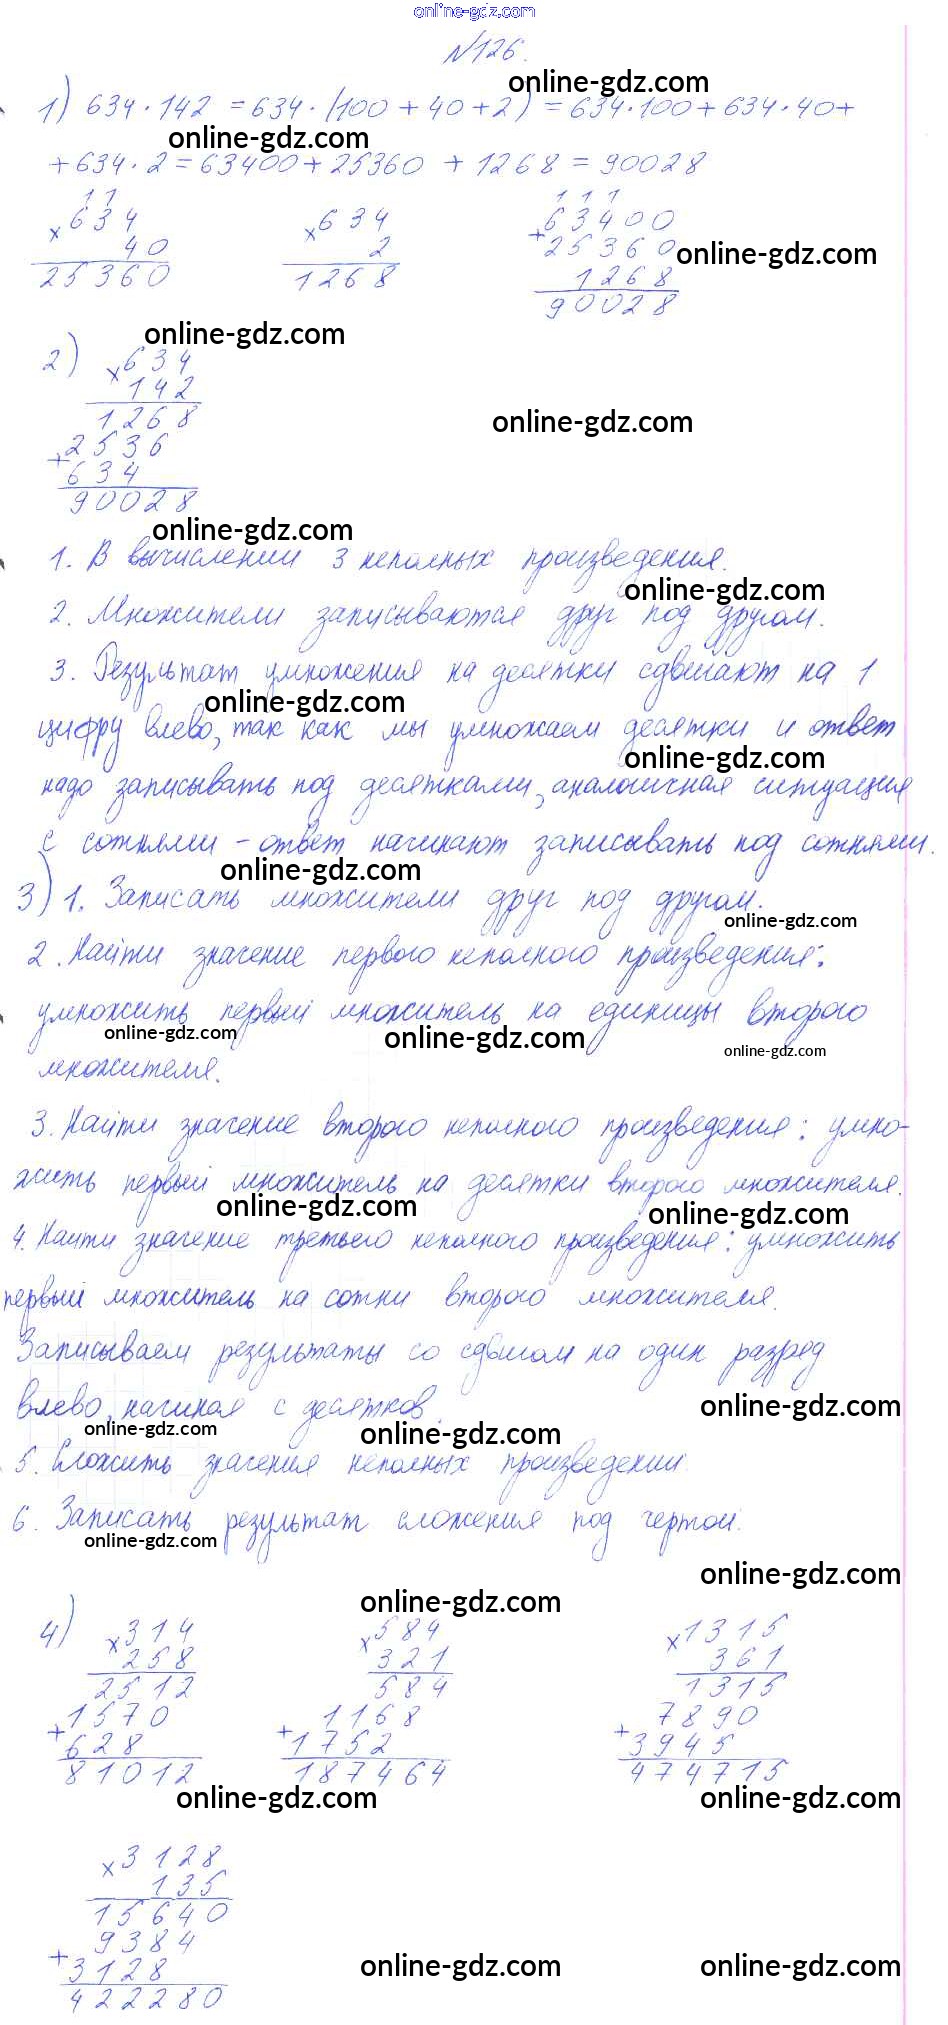 online-gdz.com
№126.
online-gdz.com
1) 634·142 = 634·(100 + 40 + 2) = 634·100 + 634·40 +
online-gdz.com
+ 634·2 = 63400 + 25360 + 1268 = 90028
1 1
1 1 1
× 634
× 634
63400
40
2
+ 25360
online-gdz.com
25360
1268
1268
90028
online-gdz.com
2) × 634
142
1268
online-gdz.com
2536
+ 634
90028
online-gdz.com
1. В вычислении 3 неполных произведения.
online-gdz.com
2. Множители записываются друг под другом.
3. Результат умножения на десятки сдвигают на 1
online-gdz.com
цифру влево, так как мы умножаем десятки и ответ
online-gdz.com
надо записывать под десятками, аналогичная ситуация
с сотнями - ответ начинают записывать под сотнями.
online-gdz.com
3) 1. Записать множители друг под другом.
online-gdz.com
2. Найти значение первого неполного произведения:
умножить первый множитель на единицы второго
online-gdz.com
online-gdz.com
online-gdz.com
множителя.
3. Найти значение второго неполного произведения: умно-
жить первый множитель на десятки второго множителя.
online-gdz.com
online-gdz.com
4. Найти значение третьего неполного произведения: умножить
первый множитель на сотни второго множителя.
Записываем результаты со сдвигом на один разряд
влево, начиная с десятков.
online-gdz.com
online-gdz.com
online-gdz.com
5. Сложить значения неполных произведений.
6. Записать результат сложения под чертой.
online-gdz.com
online-gdz.com
online-gdz.com
4) × 314
× 584
× 1315
258
321
361
2512
584
1315
1570
1168
7890
+ 628
+ 1752
+ 3945
81012
187464
474715
online-gdz.com
online-gdz.com
× 3128
135
15640
9384
+ 3128
online-gdz.com
online-gdz.com
422280